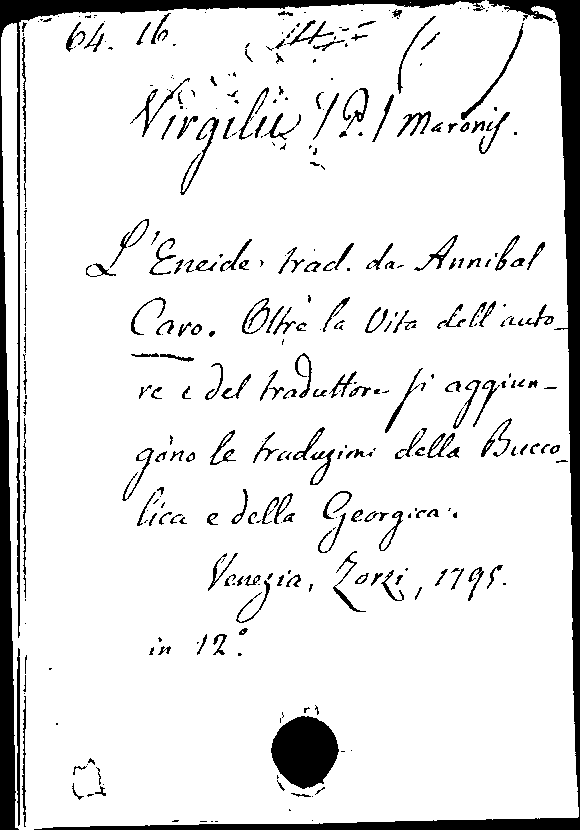 64. 16.
Virgilii (P.) Maronis.
L'Eneide, trad. da Annibal
Caro. Oltre la Vita dell'auto-
re e del traduttore si aggiun-
gono le traduzioni della Bucco-
lica e della Georgica.
Venezia, Zorzi, 1795.
in 12°